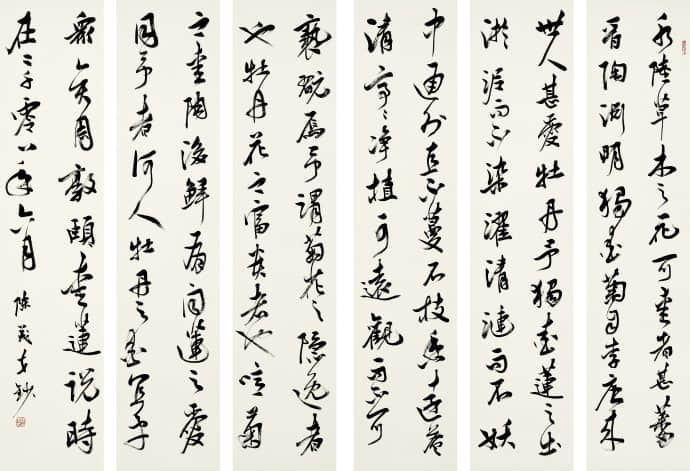 水陸草木之花可愛者甚蕃
晋陶淵明獨愛菊自李唐来
世人甚愛牡丹予獨愛蓮之出
淤泥而不染濯清漣而不妖
中通外直不蔓不枝香遠益
清亭々净植可遠觀而不可
褻翫焉予謂菊花之隱逸者
也牡丹花之富貴者也噫菊
之愛陶後鮮有聞蓮之愛
同予者何人牡丹之愛宜乎
衆矣周敦頤愛蓮説時
在二千零八年六月
陳才鈔